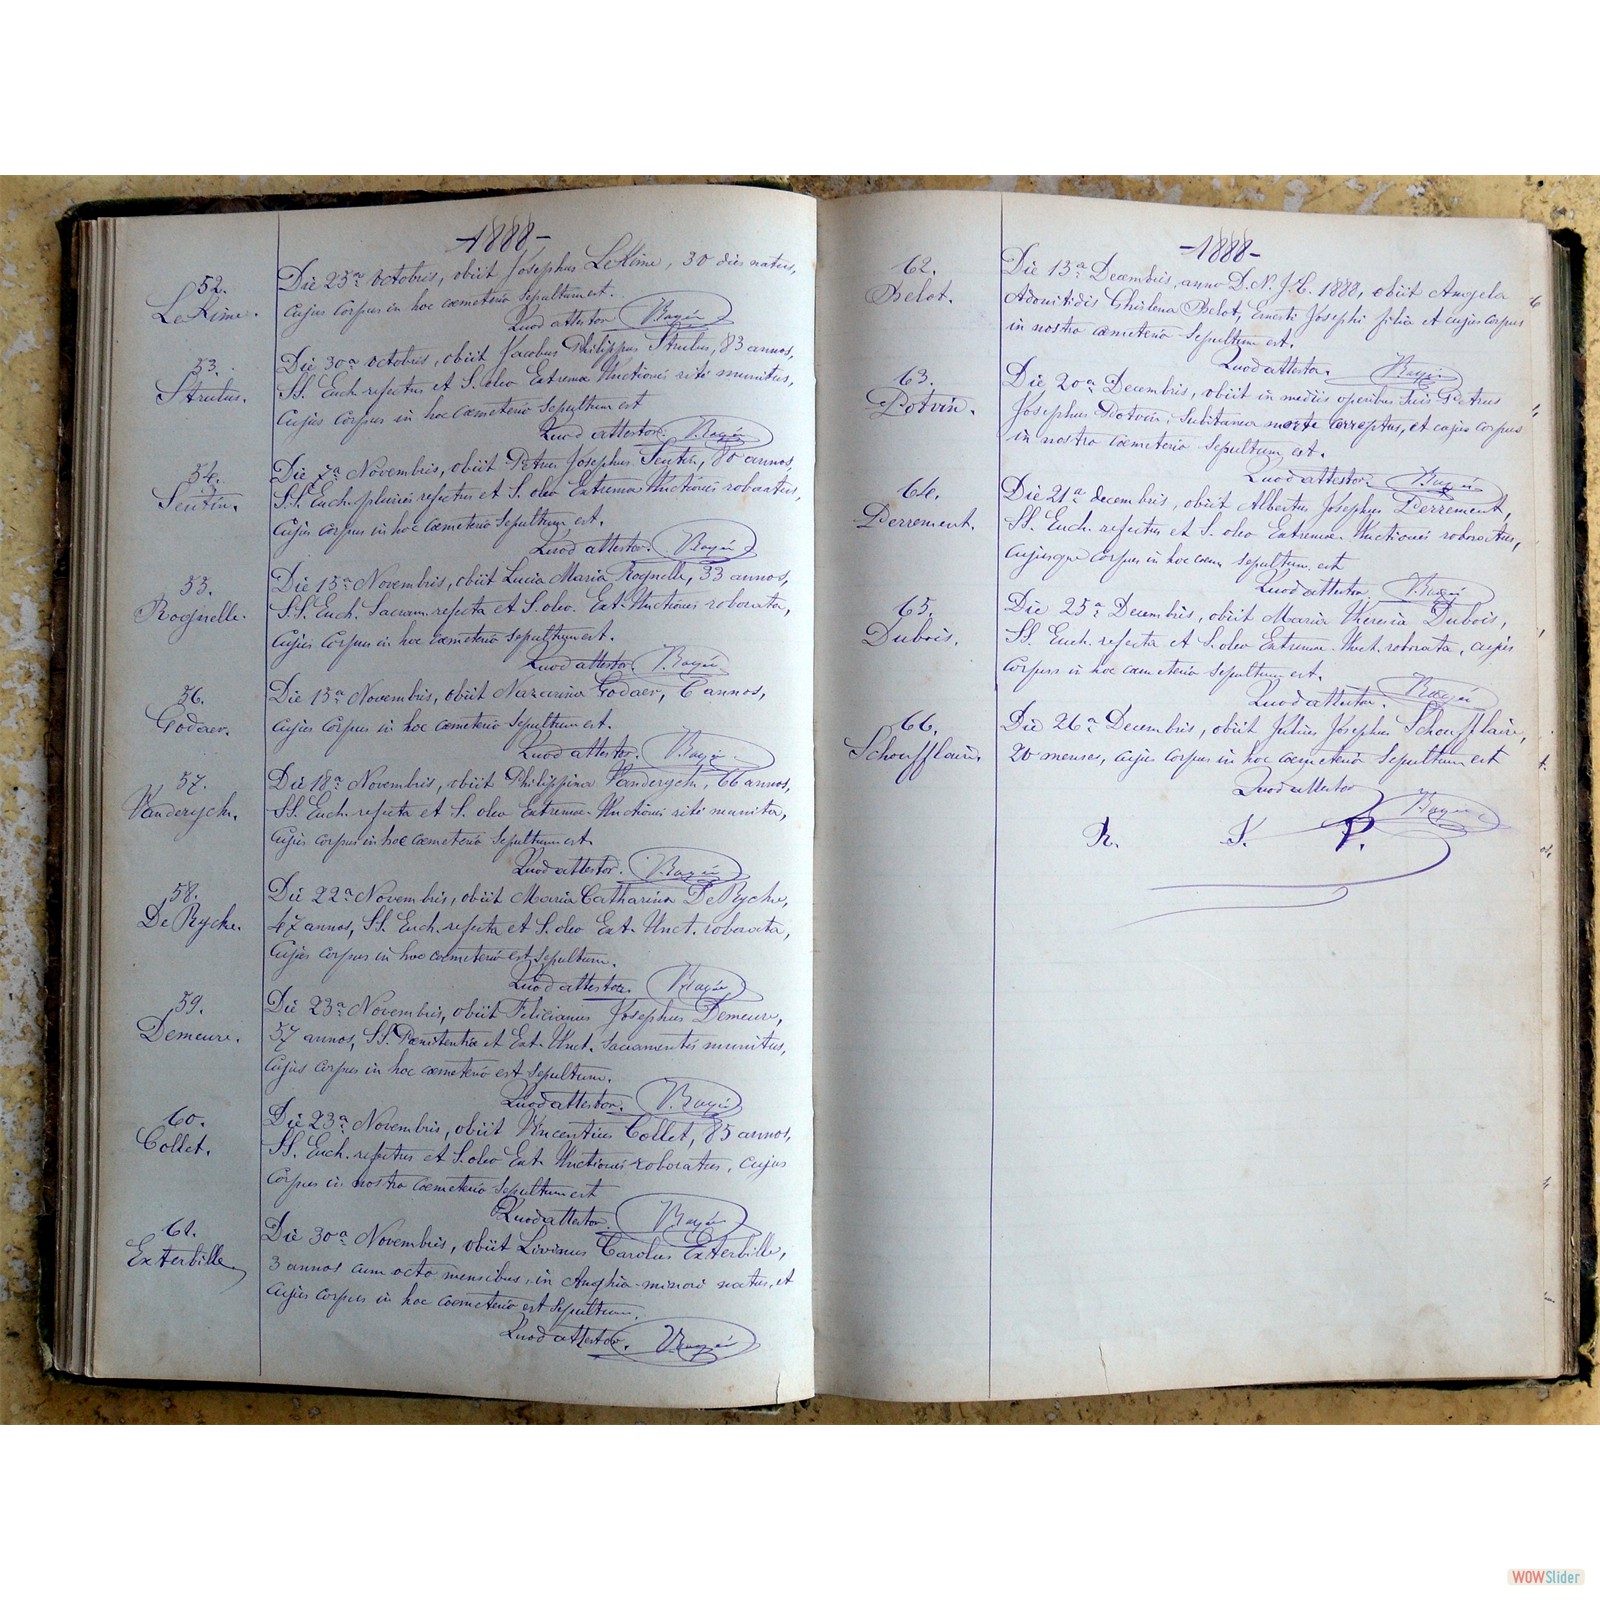 -1888-
52.
LeKime.
Die 25a octobris, obiit Josephus LeKime, 30 dies natus,
cujus corpus in hoc cœmeterio sepultum est.
Quod attestor
53.
Strulus.
Die 30a octobris, obiit Jacobus Philippus Strulus, 83 annos,
SS. Euch. refectus et S. oleo Extremæ Unctionis rite munitus,
cujus corpus in hoc cœmeterio sepultum est
Quod attestor.
54.
Sentin.
Die 7a Novembris, obiit Petrus Josephus Sentin, 80 annos,
S.S. Euch. pluries refectus et S. oleo Extremæ Unctionis roboratus,
cujus corpus in hoc cœmeterio sepultum est.
Quod attestor.
55.
Rognelle.
Die 15a Novembris, obiit Lucia Maria Rognelle, 33 annos,
S.S. Euch. Sacram. refecta et S. oleo. Ext. Unctionis roborata,
cujus corpus in hoc cœmeterio sepultum est.
Quod attestor.
56.
Godaer.
Die 15a Novembris, obiit Nazarina Godaer, 6 annos,
cujus corpus in hoc cœmeterio sepultum est.
Quod attestor.
57.
Vanderych.
Die 18a Novembris, obiit Philippina Vanderych, 66 annos,
SS. Euch. refecta et S. oleo Extremæ Unctionis rite munita,
cujus corpus in hoc cœmeterio sepultum est
Quod attestor.
58.
DeRycke.
Die 22a Novembris, obiit Maria Catharina DeRycke,
47 annos, SS. Euch. refecta et S. oleo Ext. Unct. roborata,
cujus corpus in hoc cœmeterio est sepultum.
Quod attestor.
59.
Demeure.
Die 23a Novembris, obiit Felicianus Josephus Demeure,
57 annos, SS. Pœnitentiæ et Ext. Unct. sacramentis munitus,
cujus corpus in hoc cœmeterio est sepultum.
Quod attestor.
60.
Collet.
Die 23a Novembris, obiit Vincentius Collet, 85 annos,
SS. Euch. refectus et S. oleo Ext. Unctionis roboratus, cujus
corpus in nostro cœmeterio sepultum est
Quod attestor.
61.
Exterbille
Die 30a Novembris, obiit Livinus Carolus Exterbille,
3 annos cum octo mensibus, in Anghia-minori natus, et
cujus corpus in hoc cœmeterio est sepultum.
Quod attestor.
-1888-
62.
Belot.
Die 13a Decembris, anno D.N.J.C. 1888, obiit Angela
Adonitidis Ghislena Belot, Ernesti Josephi filia et cujus corpus
in nostro cœmeterio sepultum est.
Quod attestor.
63.
Potvin.
Die 20a Decembris, obiit in mediis operibus suis Petrus
Josephus Potvin, subitanea morte correptus, et cujus corpus
in nostro cœmeterio sepultum est.
Quod attestor.
64.
Derrement.
Die 21a decembris, obiit Albertus Josephus Derrement,
SS. Euch. refectus et S. oleo Extremæ Unctionis roboratus,
cujusque corpus in hoc cœm. sepultum est
Quod attestor.
65.
Dubois.
Die 25a Decembris, obiit Maria Theresia Dubois,
SS. Euch. refecta et S. oleo Extremæ Unct. roborata, cujus
corpus in hoc cœmeterio sepultum est.
Quod attestor.
66.
Schoufflaire.
Die 26a Decembris, obiit Julius Josephus Schoufflaire,
20 menses, cujus corpus in hoc cœmeterio sepultum est
Quod attestor
R. I. P.
WOWSlider